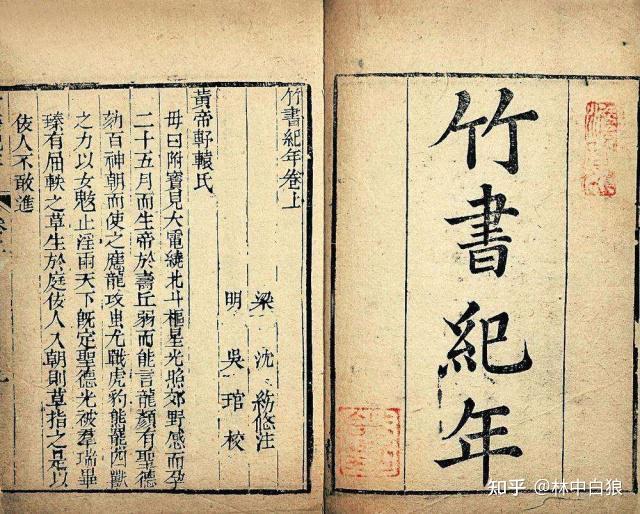 竹書紀年
竹書紀年卷上
梁 沈 約 注
明 吳 琯 校
黃帝軒轅氏
母曰附寶見大電繞北斗樞星光照郊野感而孕
二十五月而生帝於壽丘弱而能言龍顏有聖德
劾百神朝而使之應龍攻蚩尤戰虎豹熊羆四獸
之力以女魃止淫雨天下旣定聖德光被羣瑞畢
臻有屈軼之草生於庭佞人入朝則草指之是以
佞人不敢進
知乎 @林中白狼